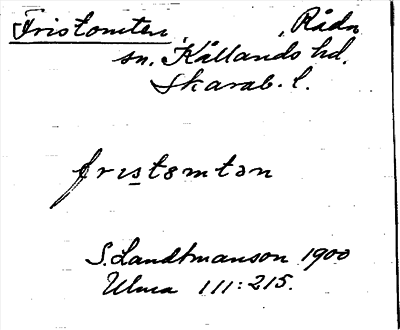 Fristomten, , Råda
sn. Kållands hd.
Skarab. l.
fristomtən
S. Landtmanson 1900
Ulma 111:215.